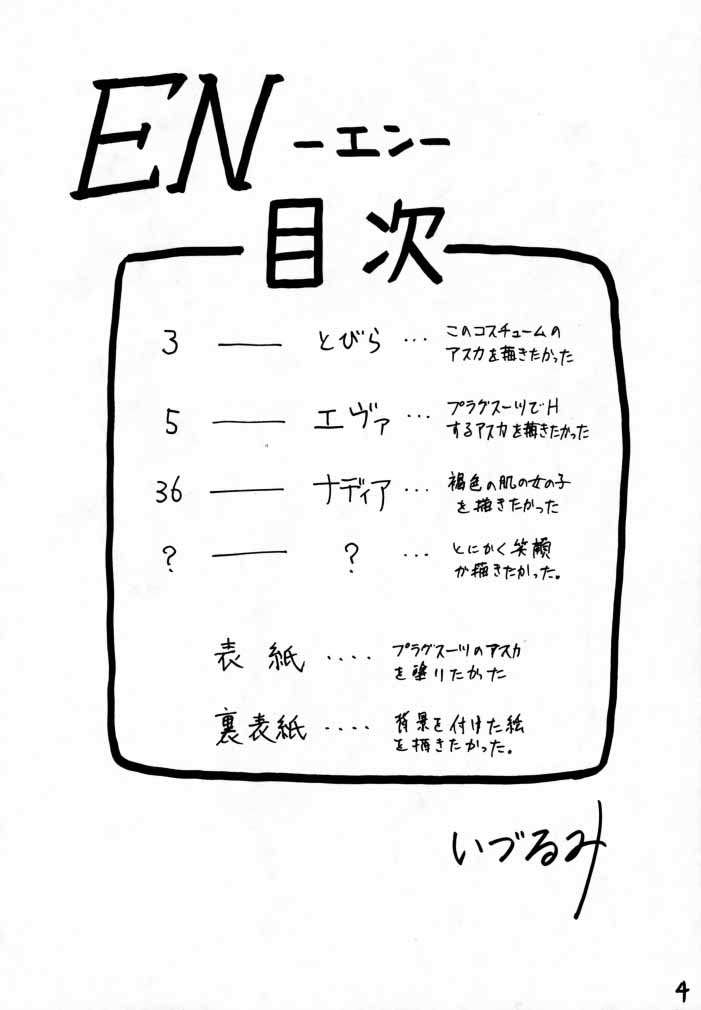 EN
－エン－
目次
3 —— とびら … このコスチュームの
アスカを描きたかった
5 —— エヴァ … プラグスーツでH
するアスカを描きたかった
36 —— ナディア … 褐色の肌の女の子
を描きたかった
? —— ? … とにかく笑顔
が描きたかった。
表紙 ‥‥ プラグスーツのアスカ
を塗りたかった
裏表紙 ‥‥ 背景を付けた絵
を描きたかった。
いづるみ
4